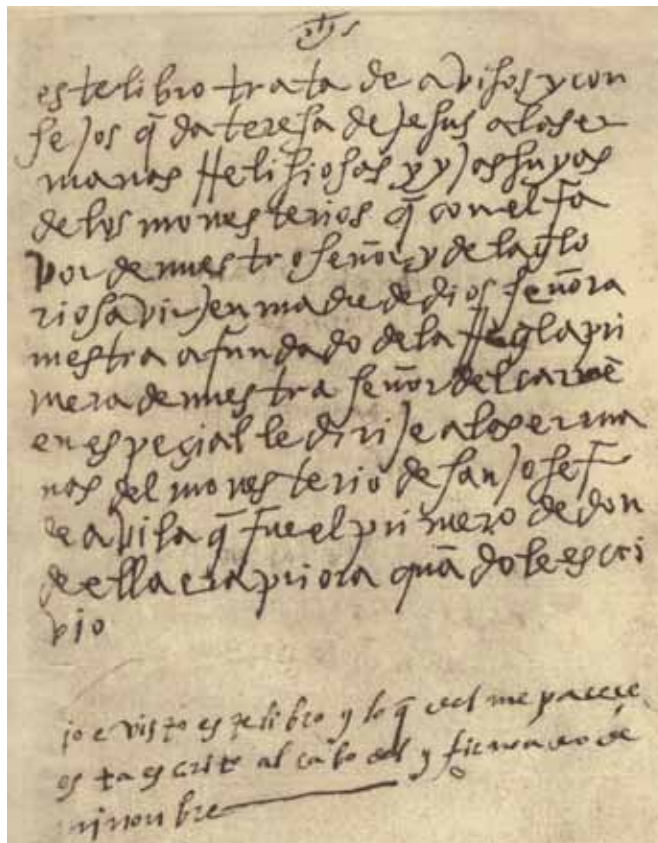 jhs
este libro trata de avisos y con
sejos q̄ da teresa de jesus a las er
manas rrelisiosas y yjas suyas
de los monesterios q̄ con el fa
vor de nuestro señor y de la glo
riosa virjen madre de dios señora
nuestra a fundado de la rregla pri
mera de nuestra señor del carmē
en especial le dirije a las erma
nas del monesterio de san josef
de avila q̄ fue el primero de don
de ella era priora quādo le escri
vio
jo e visto este libro y lo q̄ del me parece
esta escrito al cabo del y firmado de
mi nonbre